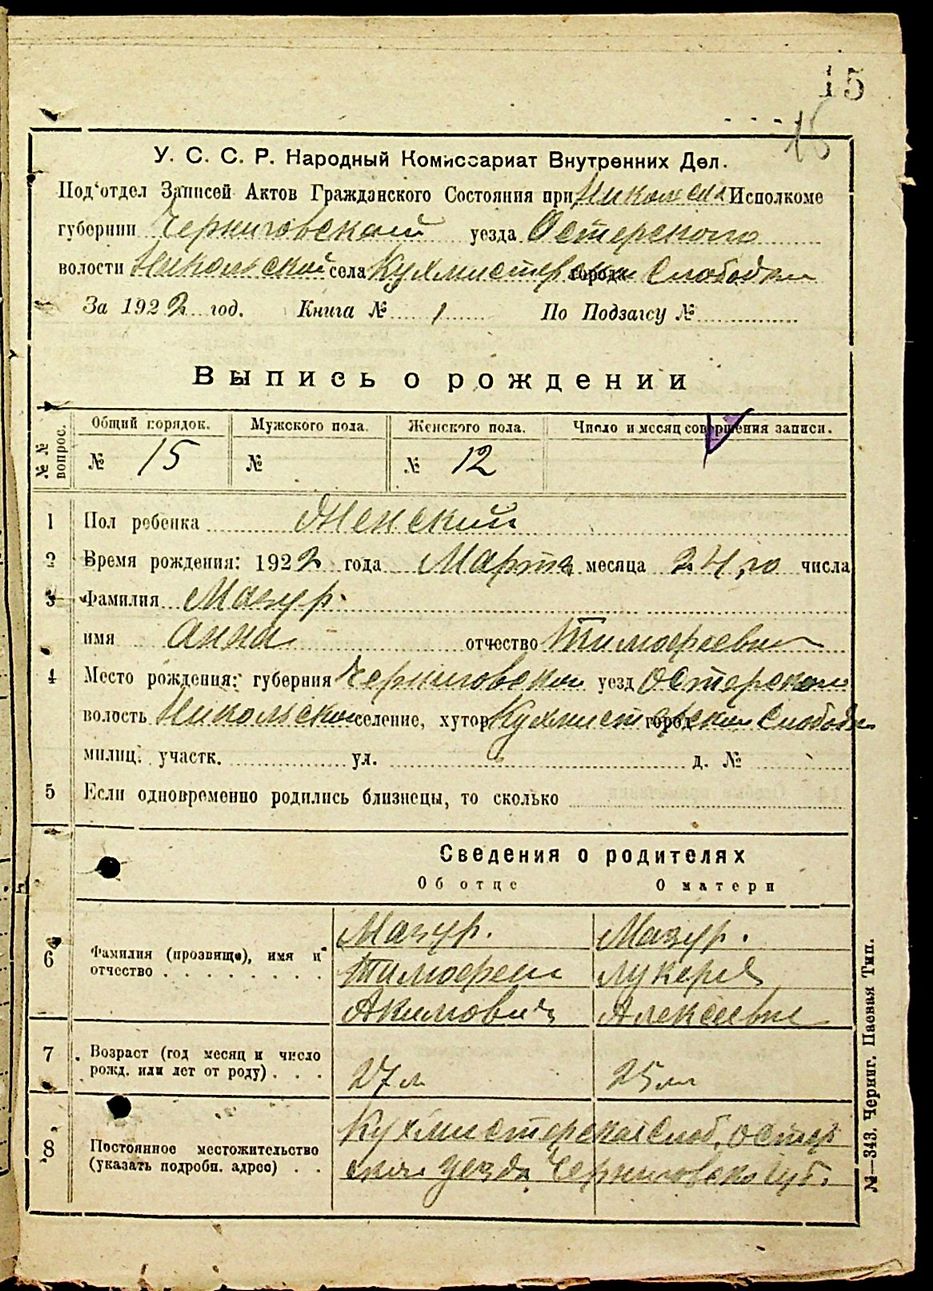 15
15
У. С. С. Р. Народный Комиссариат Внутренних Дел.
Под'отдел Записей Актов Гражданского Состояния при Никольск Исполкоме
губернии Черниговской уезда Остерского
волости Никольской села Кухмистерская города Слободки
За 1922 год. Книга № 1 По Подзагсу №
Выпись о рождении
№№ вопрос.
Общий порядок. Мужского пола. Женского пола. Число и месяц совершения записи.
№ 15 № № 12
1 Пол ребенка Женский
2 Время рождения: 1922 года Марта месяца 24,го числа
3 Фамилия Мазур.
имя Анна отчество Тимофеевн
4 Место рождения: губерния Черниговской уезд Остерском
волость Никольской селение, хутор Кухмистерская город Слободк
милиц. участк. ул. д. №
5 Если одновременно родились близнецы, то сколько
Сведения о родителях
Об отце О матери
6 Фамилия (прозвище), имя и отчество
Мазур. Мазур.
Тимофей Лукерья
Акимович Алексеевн
7 Возраст (год месяц и число рожд. или лет от роду)
27 л 25 л
8 Постоянное местожительство (указать подробн. адрес)
Кухмистерская Слоб. Остер
ского уезда Черниговской губ.
№—343. Черниг. Паевая Тип.